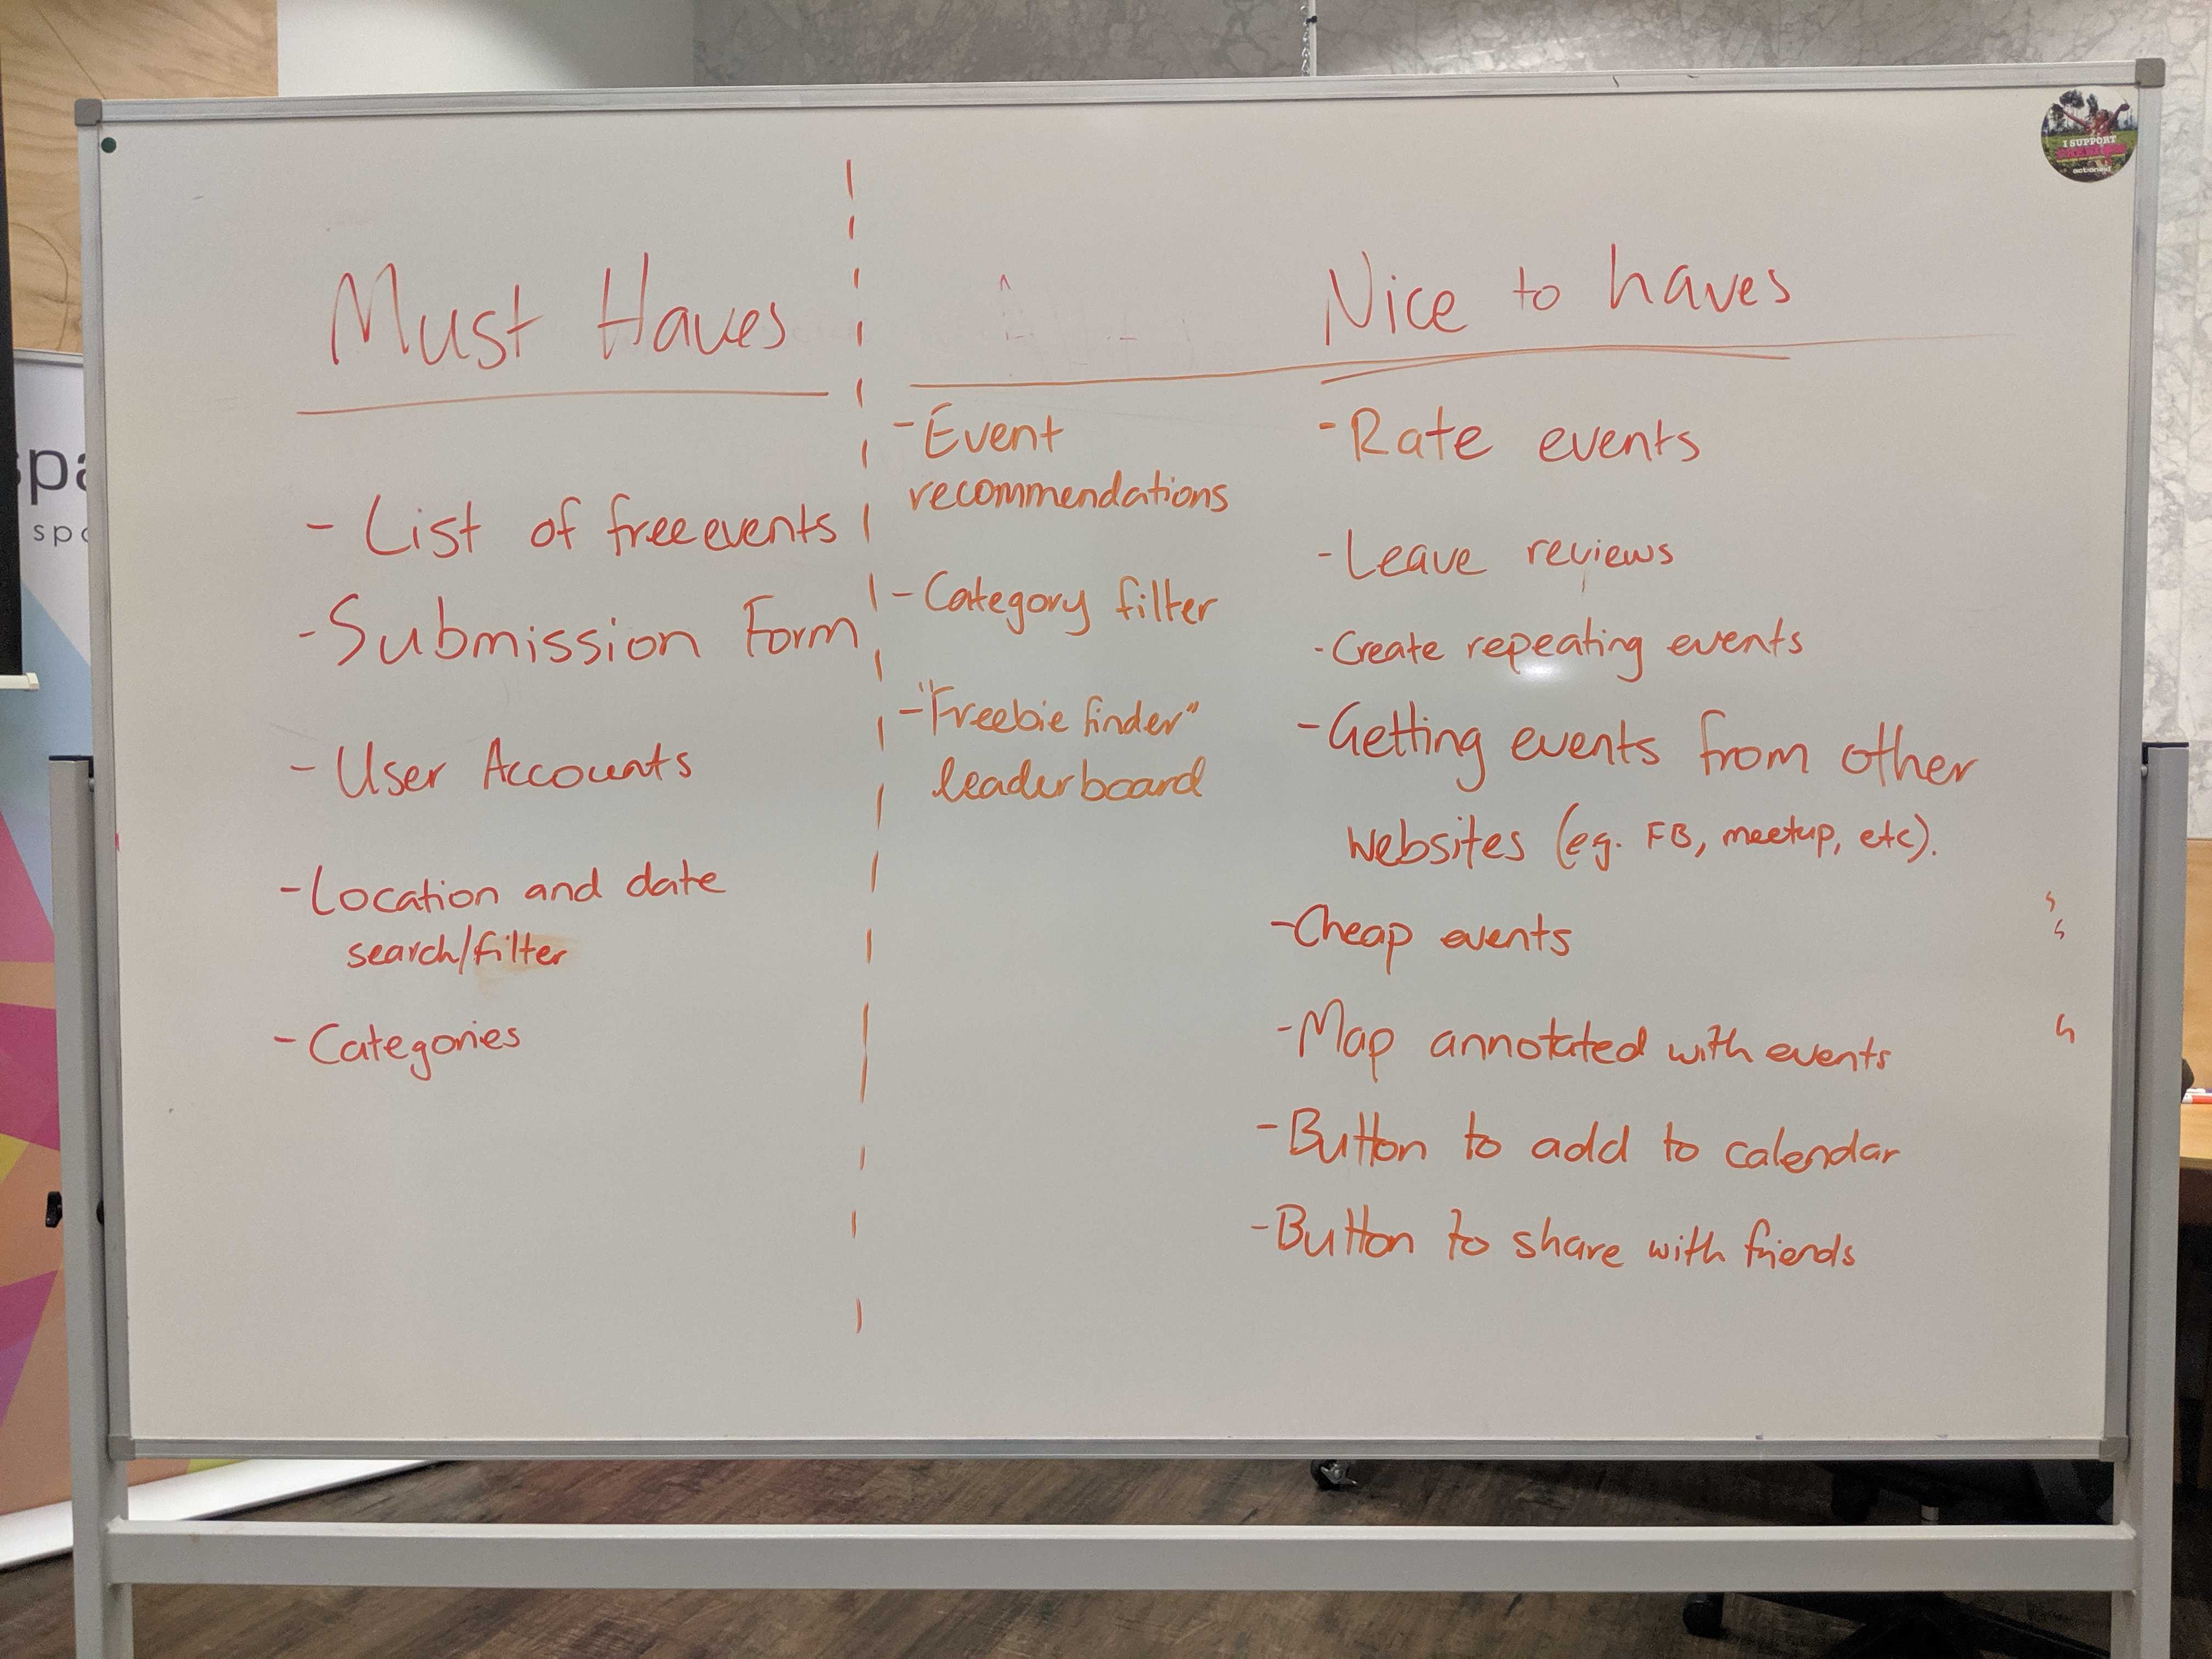 Must Haves
- List of free events
- Submission Form
- User Accounts
- Location and date
search/filter
- Categories
Nice to haves
- Event
recommendations
- Category filter
- "Freebie finder"
leaderboard
- Rate events
- Leave reviews
- Create repeating events
- Getting events from other
websites (eg. FB, meetup, etc).
- Cheap events
- Map annotated with events
- Button to add to calendar
- Button to share with friends
I SUPPORT
actionaid
spa
spa